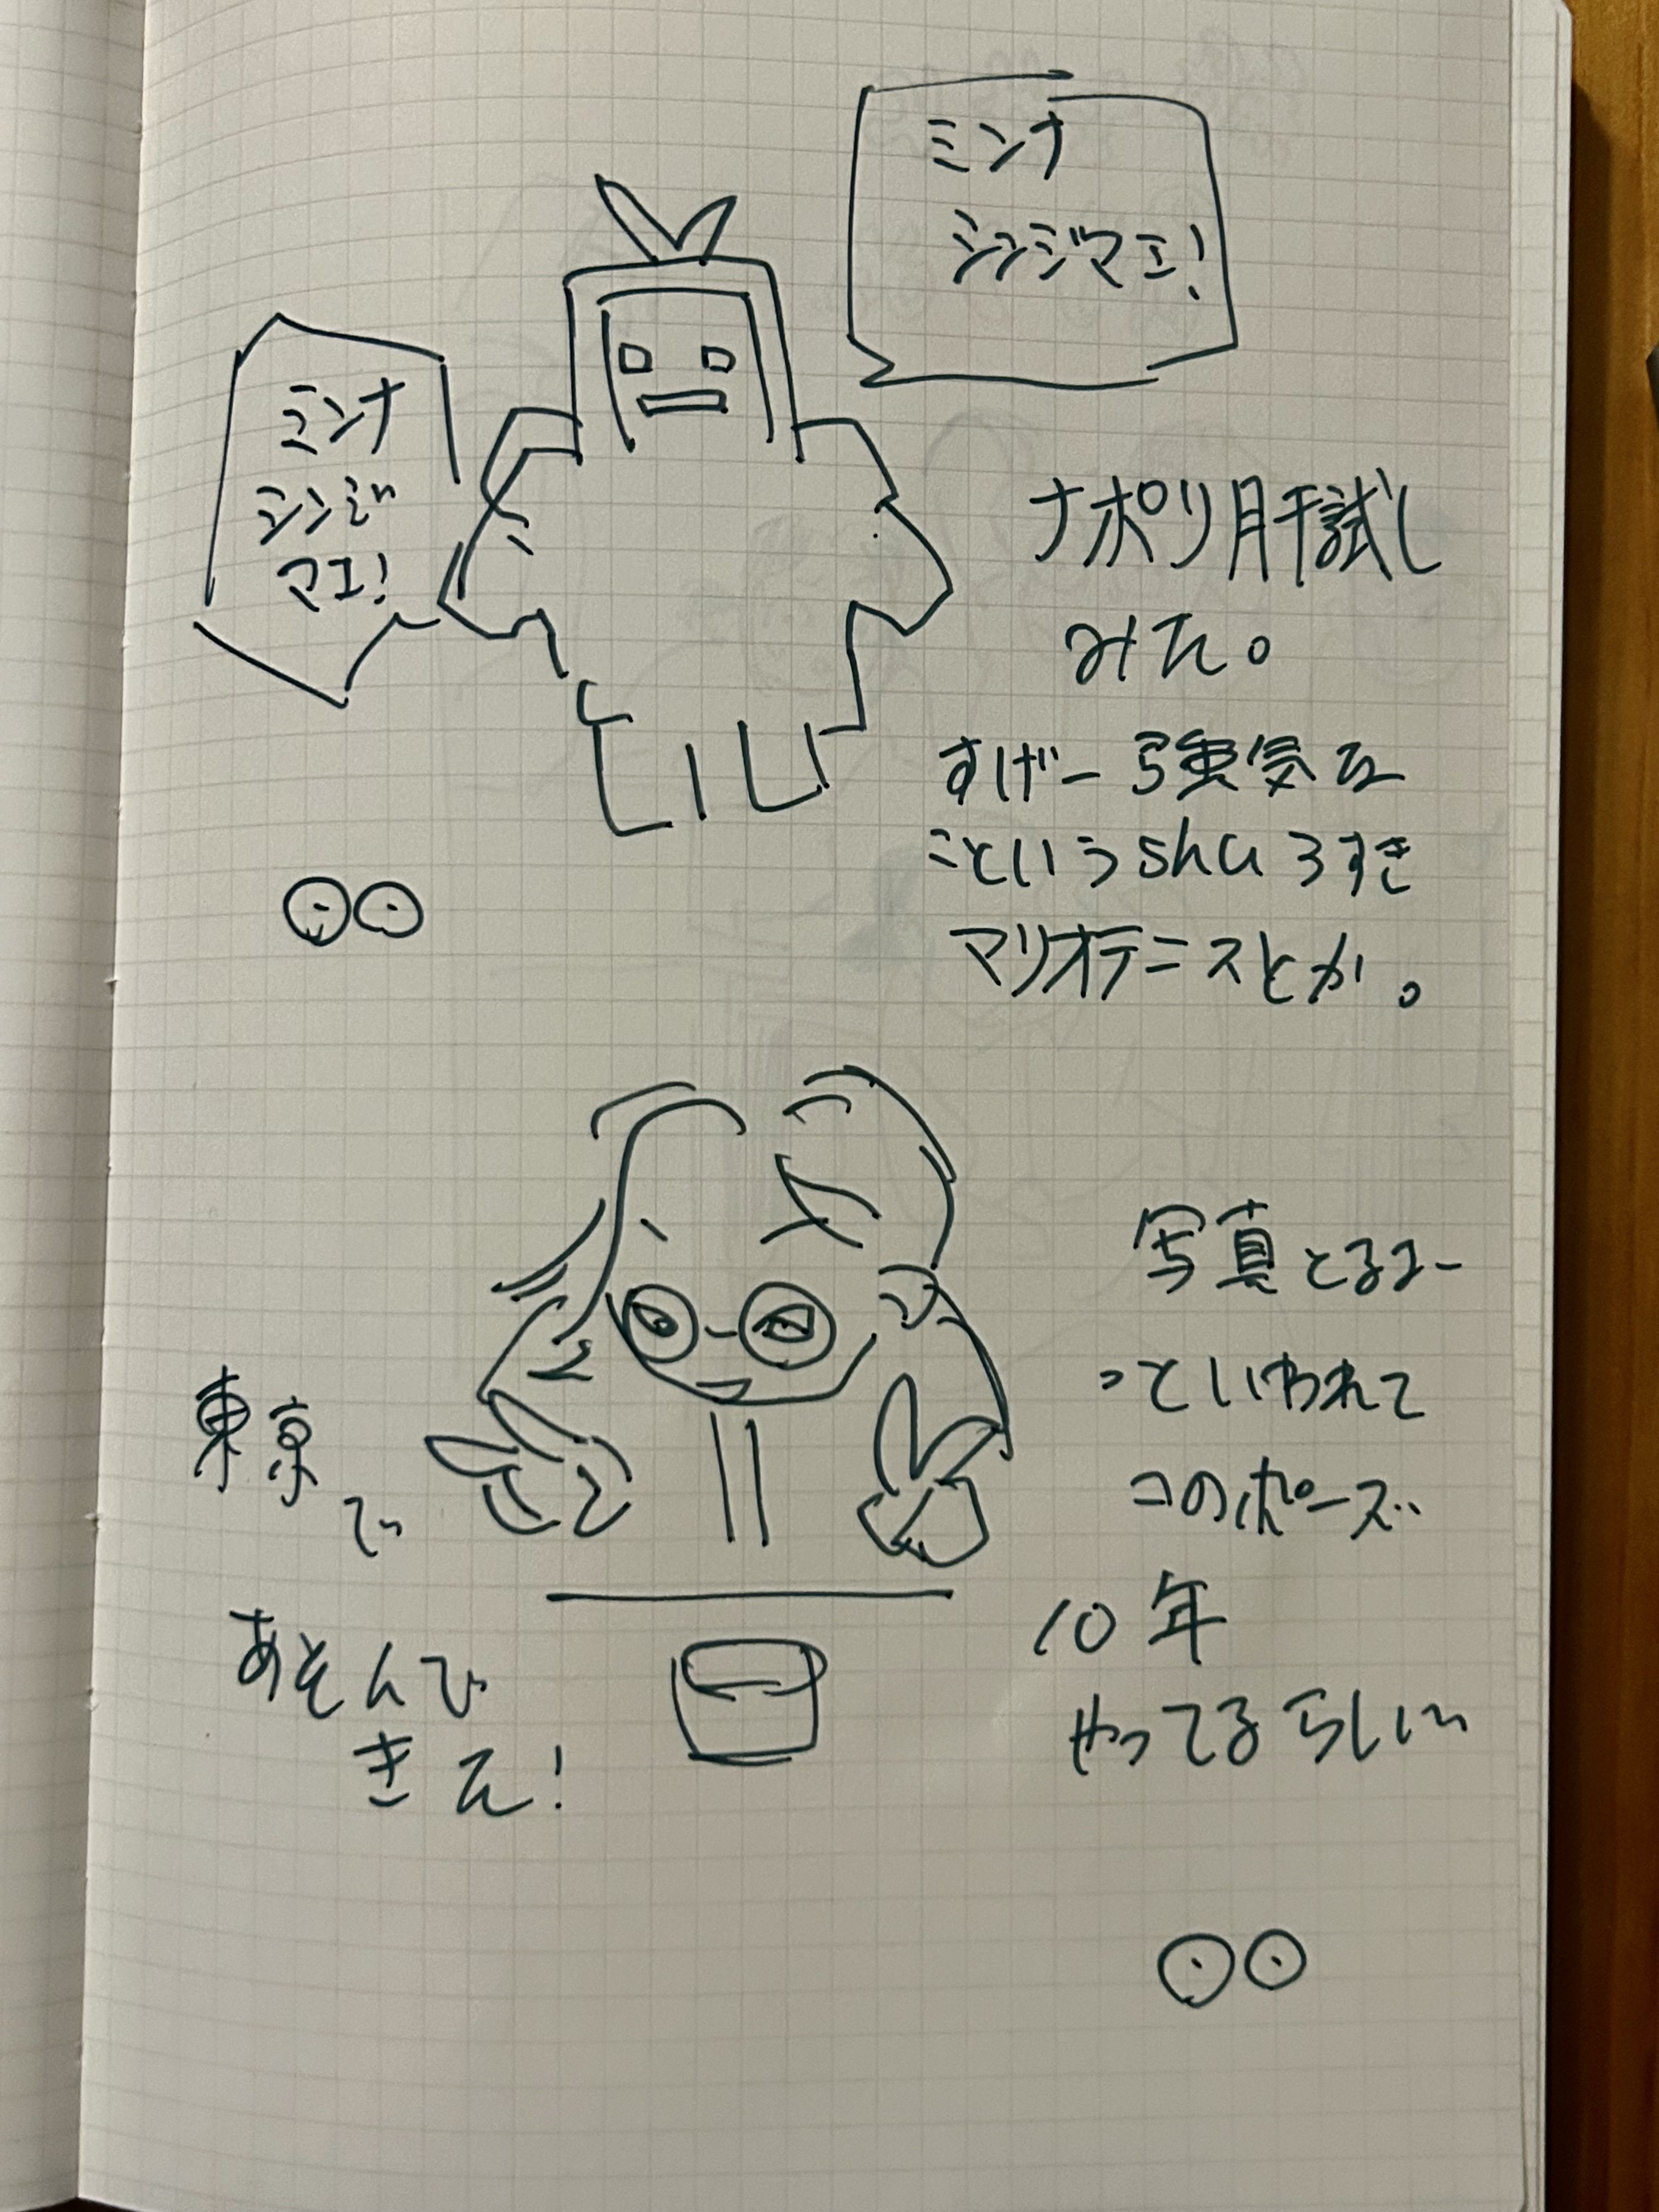 ミンナ
シンジマエ!
ミンナ
シンジ
マエ!
ナポリ肝試し
みた。
すげー強気な
こというshuうすき
マリオテニスとか。
写真とるよー
っていわれて
このポーズ
10年
やってるらしい
東京
で
あそんで
きた!